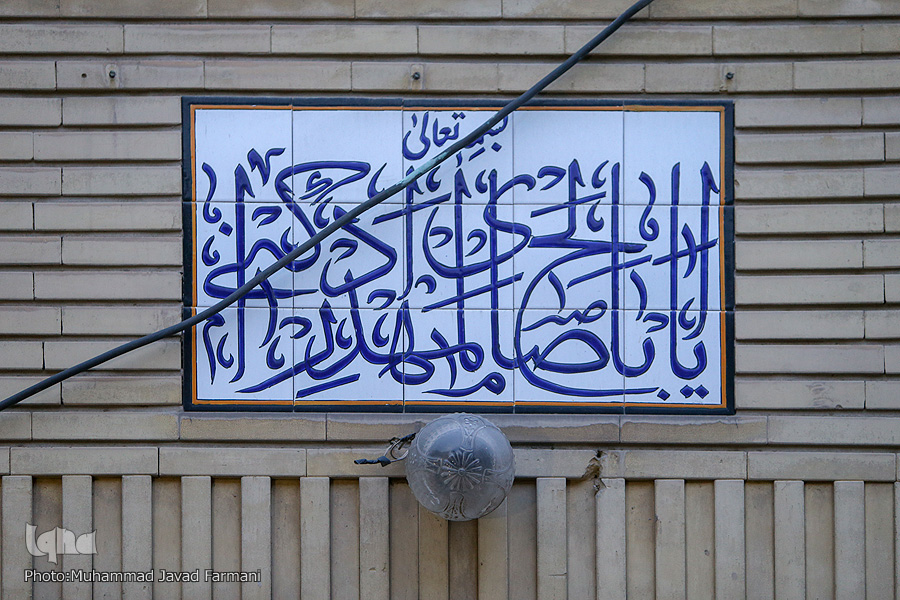 بسمه تعالی
یا ابا صالح المهدی ادرکنی
iqna
Photo:Muhammad Javad Farmani